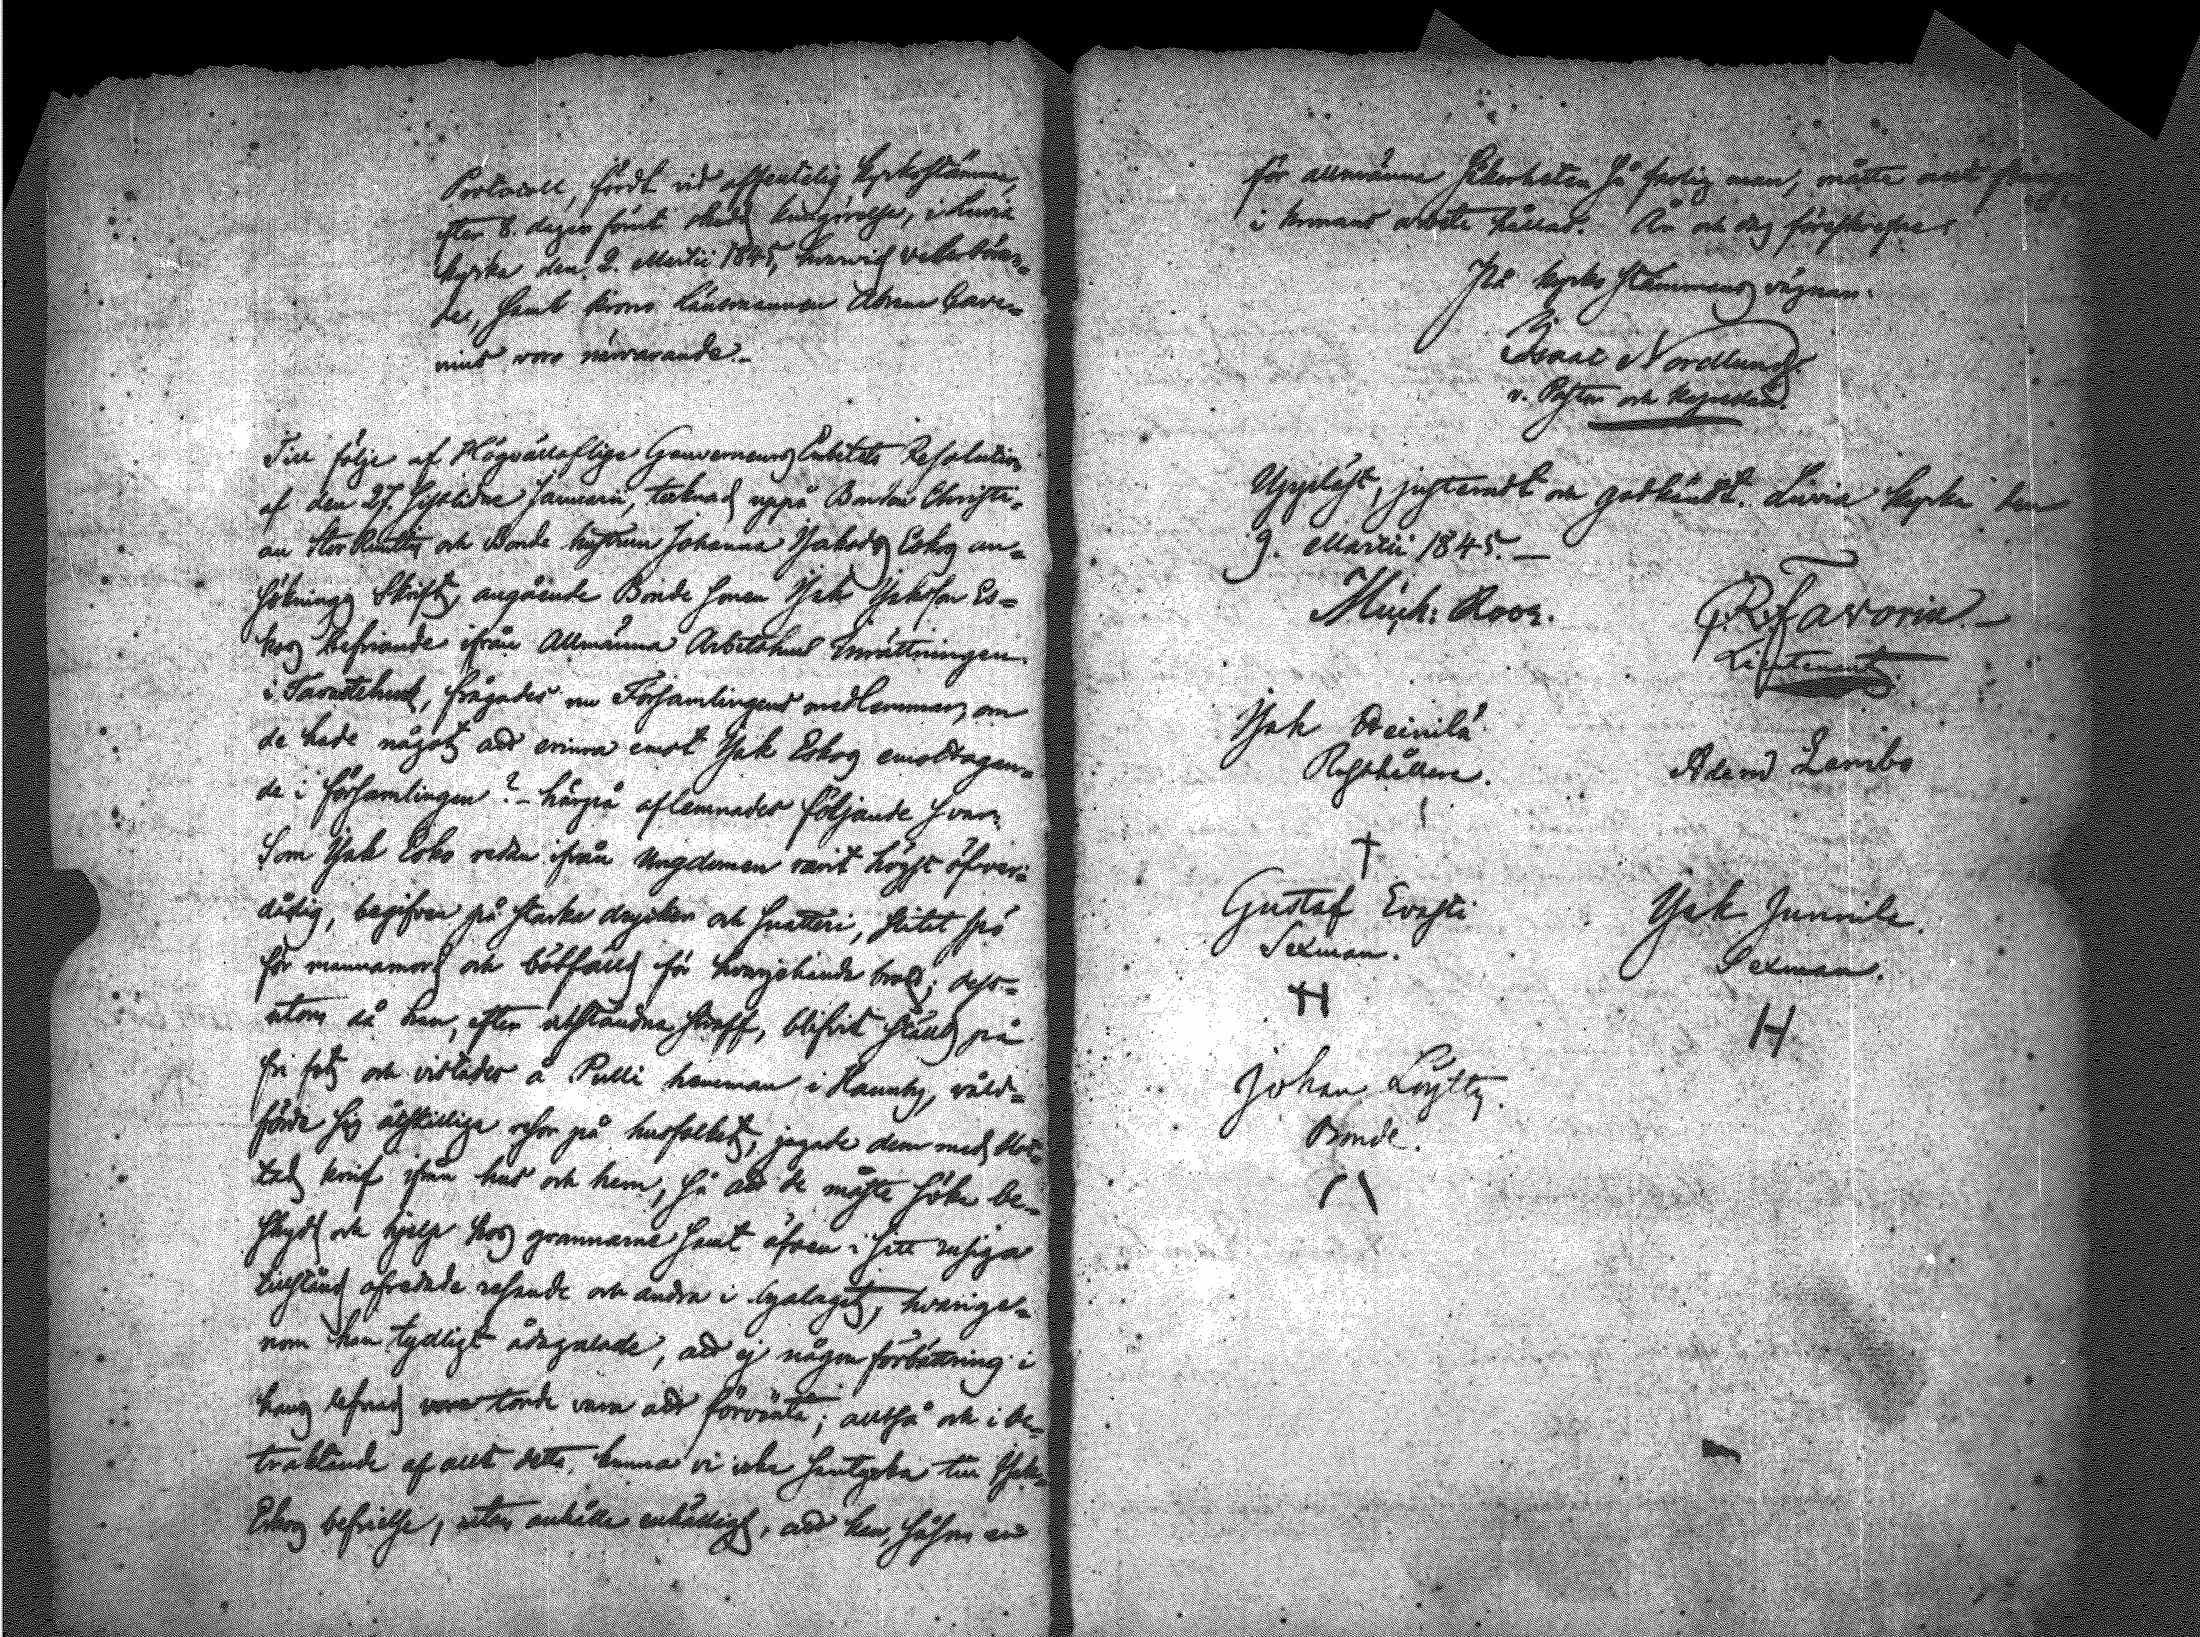 Protocoll, fördt vid offentelig kyrkostämma,
efter 8. dagar förut skedd kungörelse, i Luvia
kyrka den 2. Martii 1845, hvarvid vederböran=
de, samt krono länsmannen Abram Cave=
nius voro närvarande._
Till följe af Högvälloflige Gouverneurs Embetets Resolution
af den 27. sistlidne Januarii, tecknad uppå Bonden Christi=
an och Bonde hustrun Johanna Isaksdr Eskos an=
söknings Skrift, angående Bonde sonen Isak Isaksson Es=
kos befriande ifrån Allmänna Arbetshus Inrättningen
i Tavastehus, frågades nu Församlingens medlemmar, om
de hade något att erinra emot Isak Eskos emottagan=
de i församlingen ? _ härpå aflemnades följande svar:
Som Isak Esko redan ifrån Ungdomen varit högst öfver=
dådig, begifven på starka drycker och snatteri, slitet spö
för mannamord och bötfälld för hvarjehanda brott; dess=
utom då han, efter utståndna straff, blifvit ställd på
fri fot och vistades å Pulli hemman i Haunby, våld=
förde sig åtskillige resor på husfolket, jagade dem med blot=
tad knif ifrån hus och hem, så att de måste söka be=
skydd och hjelp hos grannarne samt äfven i sitt rusiga
tillstånd ofredade resande och andra i byalaget, hvarige=
nom han tydligt ådagalade, att ej någon förbättring i
hans lefnad vara torde vara att förvänta; alltså och i be=
traktande af allt detta, kunna vi icke samtycka till Isak
Eskos befrielse, utan anhålle enhälligt, att han, såsom en
för allmänna säkerheten så farlig man, måtte
i kronans arbete hållas. År och dag föreskrefne:
På kyrko stämmans vägnar.
Isaac Nordlund.
v. Pastor och kapellan.
Uppläst, justeradt och godkändt. Luvia kyrka den
9. Martii 1845. _
Mich: Roos.
R. Favorin. _
Lieutenant
Isak Heinilä
Rusthållare.
Adam Lembo
Gustaf Evasti
Sexman.
Isak Junnila.
Sexman.
H
H
Johan Löytty.
Bonde.